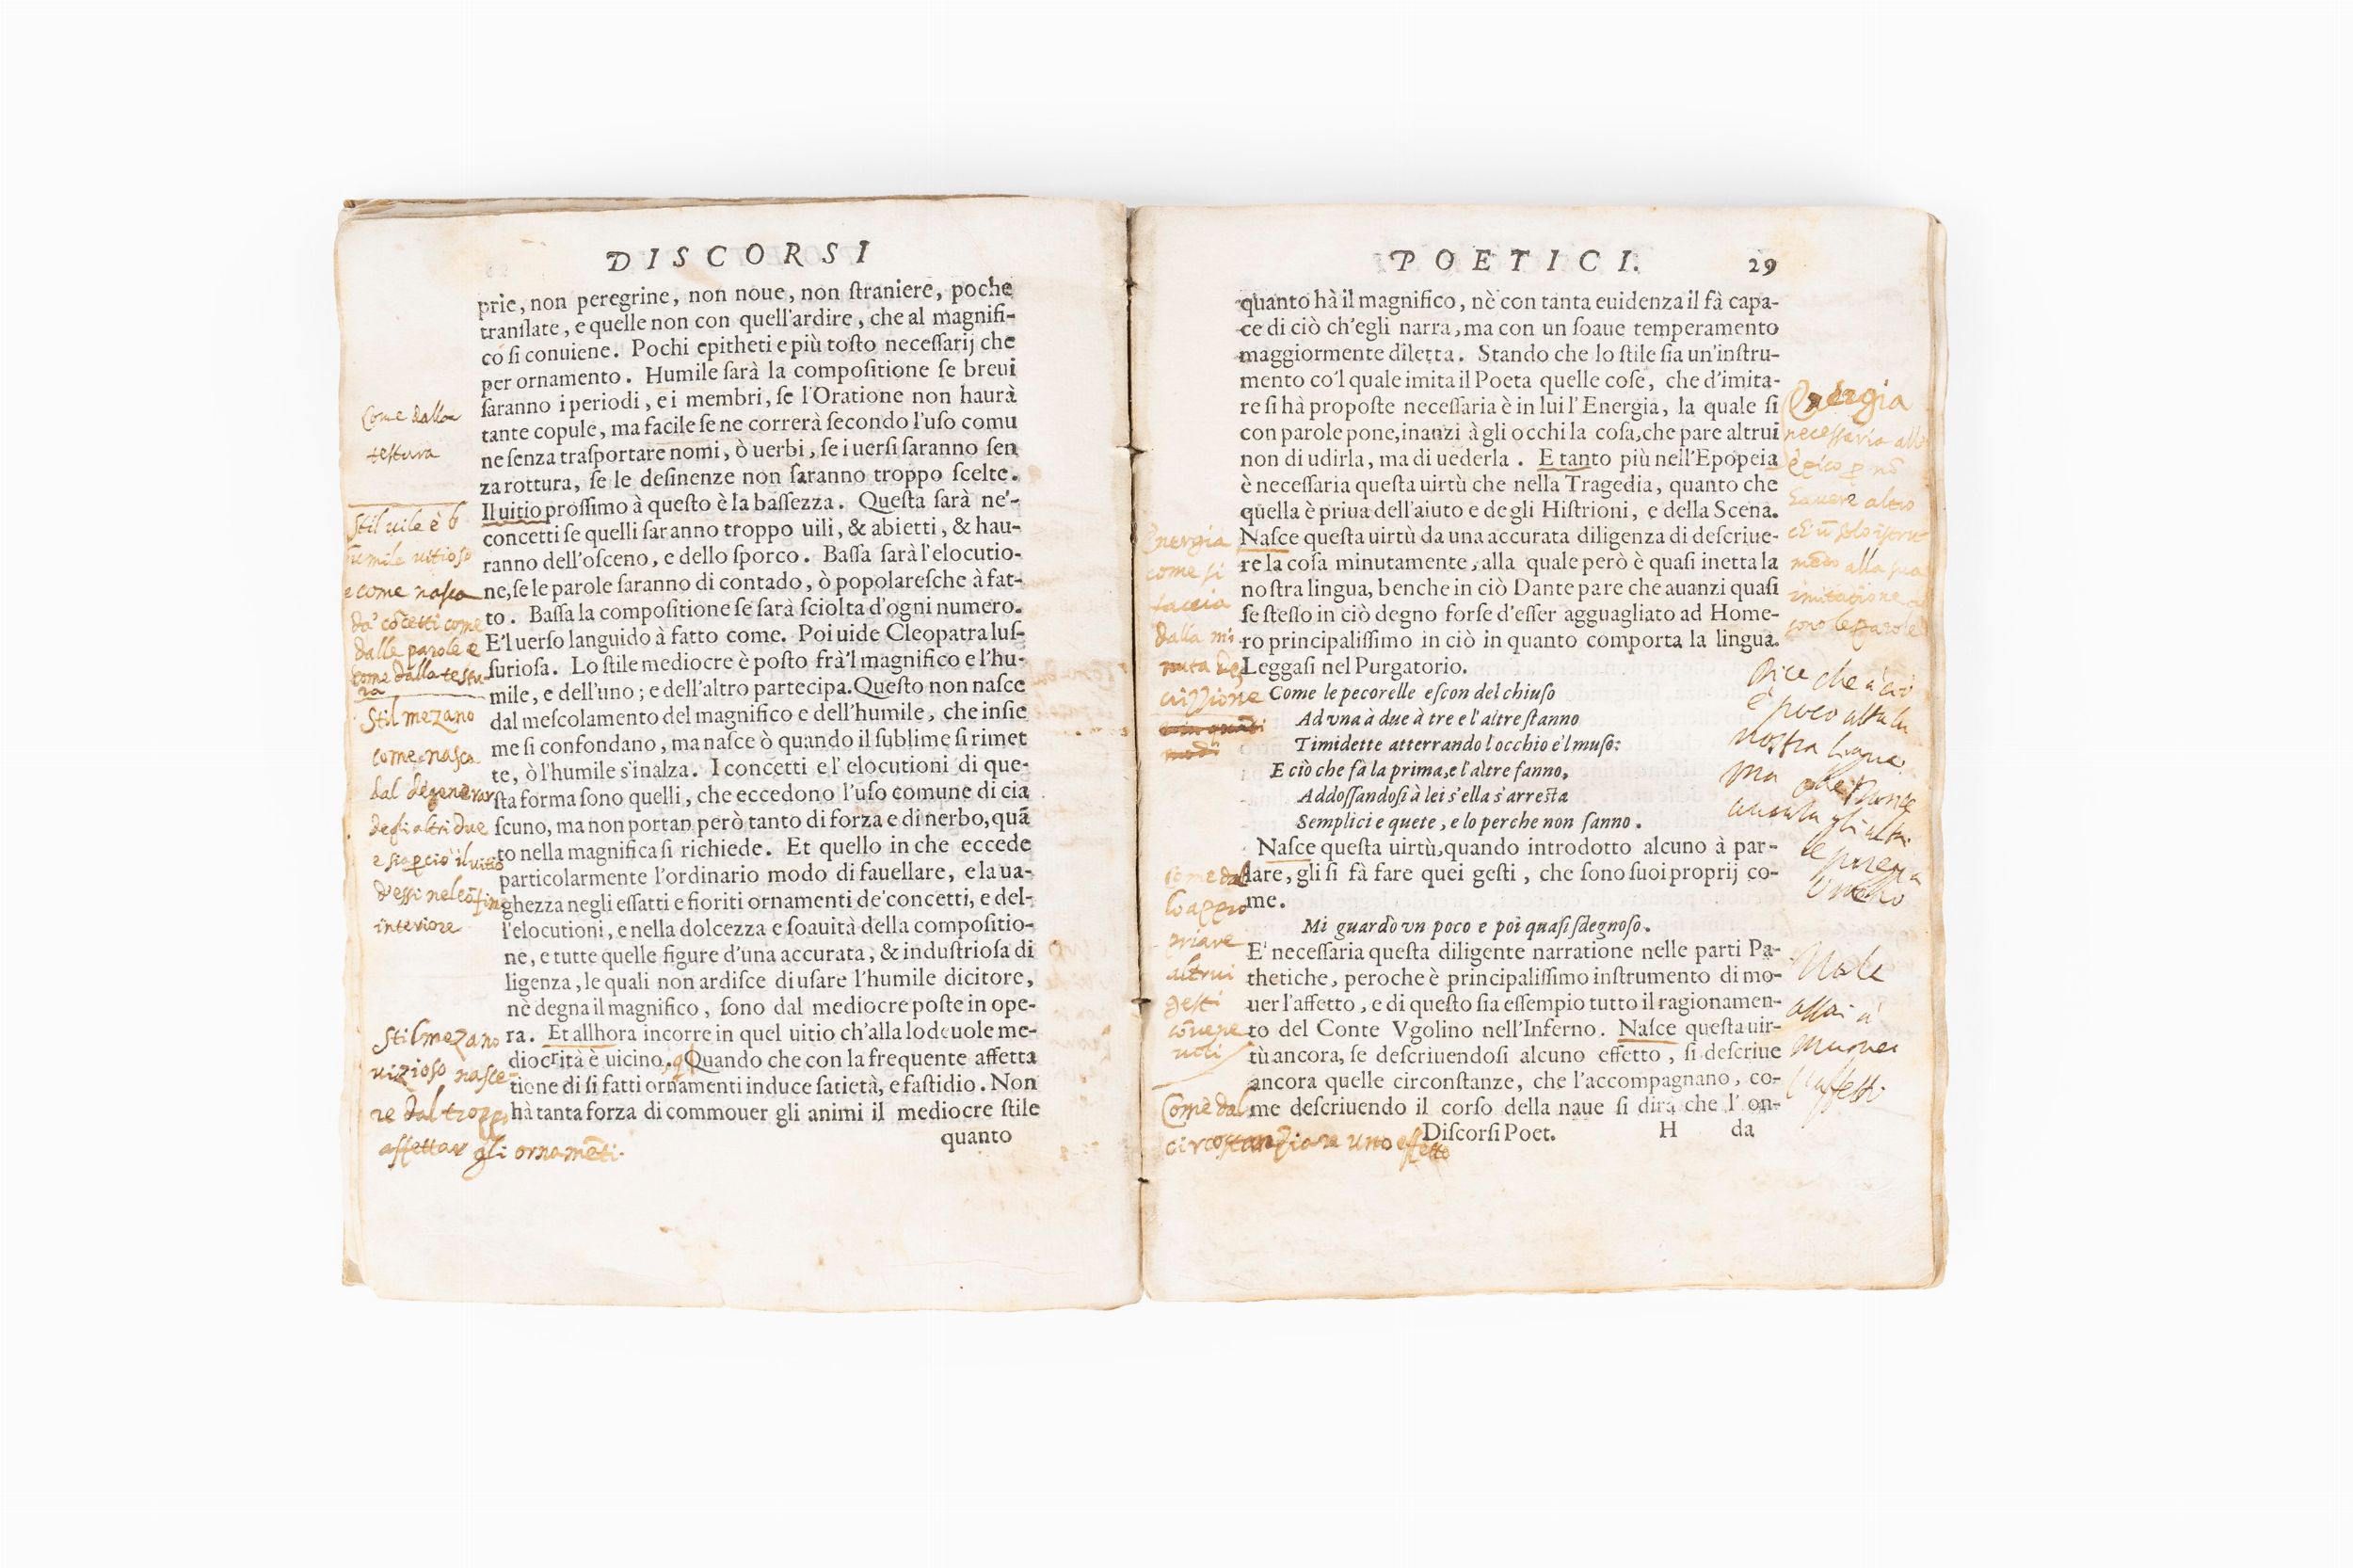 DISCORSI
prie, non peregrine, non noue, non ſtraniere, poche
tranſlate, e quelle non con quell'ardire, che al magnifi-
co ſi conuiene. Pochi epitheti e più toſto neceſſarij che
per ornamento. Humile ſarà la compoſitione ſe breui
ſaranno i periodi, e i membri, ſe l'Oratione non haurà
tante copule, ma facile ſe ne correrà ſecondo l'uſo comu
ne ſenza traſportare nomi, ò uerbi, ſe i uerſi ſaranno ſen
za rottura, ſe le deſinenze non ſaranno troppo ſcelte.
Il uitio proſſimo à queſto è la baſſezza. Queſta ſarà ne'-
concetti ſe quelli ſaranno troppo uili, & abietti, & hau-
ranno dell'oſceno, e dello ſporco. Baſſa ſarà l'elocutio-
ne, ſe le parole ſaranno di contado, ò popolareſche à fat-
to. Baſſa la compoſitione ſe ſarà ſciolta d'ogni numero.
E'l uerſo languido à fatto come. Poi uide Cleopatra luſ-
ſurioſa. Lo ſtile mediocre è poſto frà'l magnifico e l'hu-
mile, e dell'uno; e dell'altro partecipa. Queſto non naſce
dal meſcolamento del magnifico e dell'humile, che inſie
me ſi confondano, ma naſce ò quando il ſublime ſi rimet
te, ò l'humile s'inalza. I concetti e l'elocutioni di que-
ſta forma ſono quelli, che eccedono l'uſo comune di cia
ſcuno, ma non portan però tanto di forza e di nerbo, quā
to nella magnifica ſi richiede. Et quello in che eccede
particolarmente l'ordinario modo di fauellare, e la ua-
ghezza negli eſſatti e fioriti ornamenti de' concetti, e del-
l'elocutioni, e nella dolcezza e ſoauità della compoſitio-
ne, e tutte quelle figure d'una accurata, & induſtrioſa di
ligenza, le quali non ardiſce di uſare l'humile dicitore,
nè degna il magnifico, ſono dal mediocre poſte in ope-
ra. Et allhora incorre in quel uitio ch'alla lodeuole me-
diocrità è uicino, Quando che con la frequente affetta
tione di ſi fatti ornamenti induce ſatietà, e faſtidio. Non
hà tanta forza di commouer gli animi il mediocre ſtile
quanto
Come dalla
testura
Stil uile è
humile uitioso
e come nasca
da cōcetti come
dalle parole e
come dalla testu-
ra
Stil mezano
come nasca
dal degenerar
degli altri due
interiore
Stil mezano
vizioso nasce-
re dal troppo
affettar gli ornamēti.
POETICI. 29
quanto hà il magnifico, nè con tanta euidenza il fà capa-
ce di ciò ch'egli narra, ma con un ſoaue temperamento
maggiormente diletta. Stando che lo ſtile ſia un'inſtru-
mento co'l quale imita il Poeta quelle coſe, che d'imita-
re ſi hà propoſte neceſſaria è in lui l'Energia, la quale ſi
con parole pone, inanzi à gli occhi la coſa, che pare altrui
non di udirla, ma di uederla. E tanto più nell'Epopeia
è neceſſaria queſta uirtù che nella Tragedia, quanto che
quella è priua dell'aiuto e de gli Hiſtrioni, e della Scena.
Naſce queſta uirtù da una accurata diligenza di deſcriue-
re la coſa minutamente, alla quale però è quaſi inetta la
noſtra lingua, benche in ciò Dante pare che auanzi quaſi
ſe ſteſſo in ciò degno forſe d'eſſer agguagliato ad Home-
ro principaliſſimo in ciò in quanto comporta la lingua.
Leggaſi nel Purgatorio.
Come le pecorelle eſcon del chiuſo
Ad vna à due à tre e l'altre ſtanno
Timidette atterrando l'occhio e'l muſo:
E ciò che fà la prima, e l'altre fanno,
Addoſſandoſi à lei s'ella s'arreſta
Semplici e quete, e lo perche non ſanno.
Naſce queſta uirtù, quando introdotto alcuno à par-
lare, gli ſi fà fare quei geſti, che ſono ſuoi proprij co-
me.
Mi guardò vn poco e poi quaſi ſdegnoſo.
E' neceſſaria queſta diligente narratione nelle parti Pa-
thetiche, peroche è principaliſſimo inſtrumento di mo-
uer l'affetto, e di queſto ſia eſſempio tutto il ragionamen-
to del Conte Vgolino nell'Inferno. Naſce queſta uir-
tù ancora, ſe deſcriuendoſi alcuno effetto, ſi deſcriue
ancora quelle circonſtanze, che l'accompagnano, co-
me deſcriuendo il corſo della naue ſi dirà che l'on-
Diſcorſi Poet. H da
Energia
come si
faccia
dalla mi-
nuta des
crizzione
come dal
lo appro
priare
altrui
gesti
cōuene
uoli
Come dal
circostanziare uno effetto
Energia
necessaria allo
epico
hauere altro
imitatione
Dice che a ciò
è poco atta la
nostra lingua
ma che Dante
Vale
assai a
muover
l'affetti